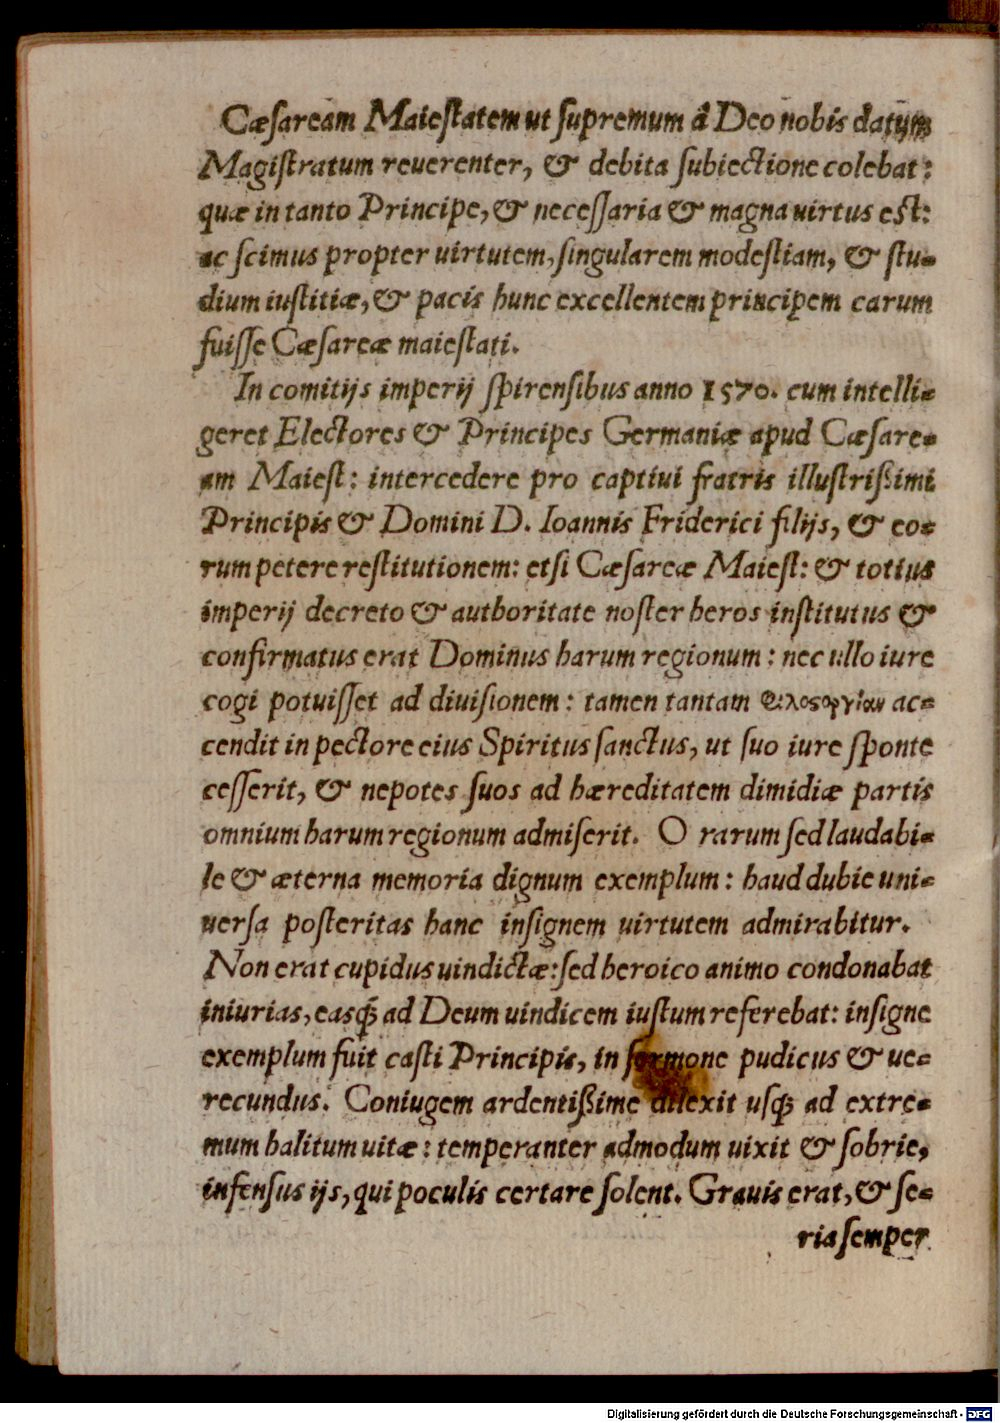 Cæſaream Maieſtatem ut ſupremum â Deo nobis datum
Magiſtratum reuerenter, & debita ſubiectione colebat:
quæ in tanto Principe, & neceſſaria & magna uirtus eſt:
ac ſcimus propter uirtutem, ſingularem modeſtiam, & ſtu-
dium iuſtitiæ, & pacis hunc excellentem principem carum
fuiſſe Cæſareæ maieſtati.
In comitijs imperij ſpirenſibus anno 1570. cum intelli-
geret Electores & Principes Germaniæ apud Cæſare-
am Maieſt: intercedere pro captiui fratris illuſtrißimi
Principis & Domini D. Ioannis Friderici filijs, & eo-
rum petere reſtitutionem: etſi Cæſareæ Maieſt: & totius
imperij decreto & authoritate noſter heros inſtitutus &
confirmatus erat Dominus harum regionum: nec ullo iure
cogi potuiſſet ad diuiſionem: tamen tantam Φιλοϛοργίαν ac-
cendit in pectore eius Spiritus ſanctus, ut ſuo iure ſponte
ceſſerit, & nepotes ſuos ad hæreditatem dimidiæ partis
omnium harum regionum admiſerit. O rarum ſed laudabi-
le & æterna memoria dignum exemplum: haud dubie uni-
uerſa poſteritas hanc inſignem uirtutem admirabitur.
Non erat cupidus uindictæ: ſed heroico animo condonabat
iniurias, easq́; ad Deum uindicem iuſtum referebat: inſigne
exemplum fuit caſti Principis, in ſermone pudicus & ue-
recundus. Coniugem ardentißime dilexit uſq; ad extre-
mum halitum uitæ: temperanter admodum uixit & ſobrie,
infenſus ijs, qui poculis certare ſolent. Grauis erat, & ſe-
ria ſemper
Digitalisierung gefördert durch die Deutsche Forschungsgemeinschaft - DFG